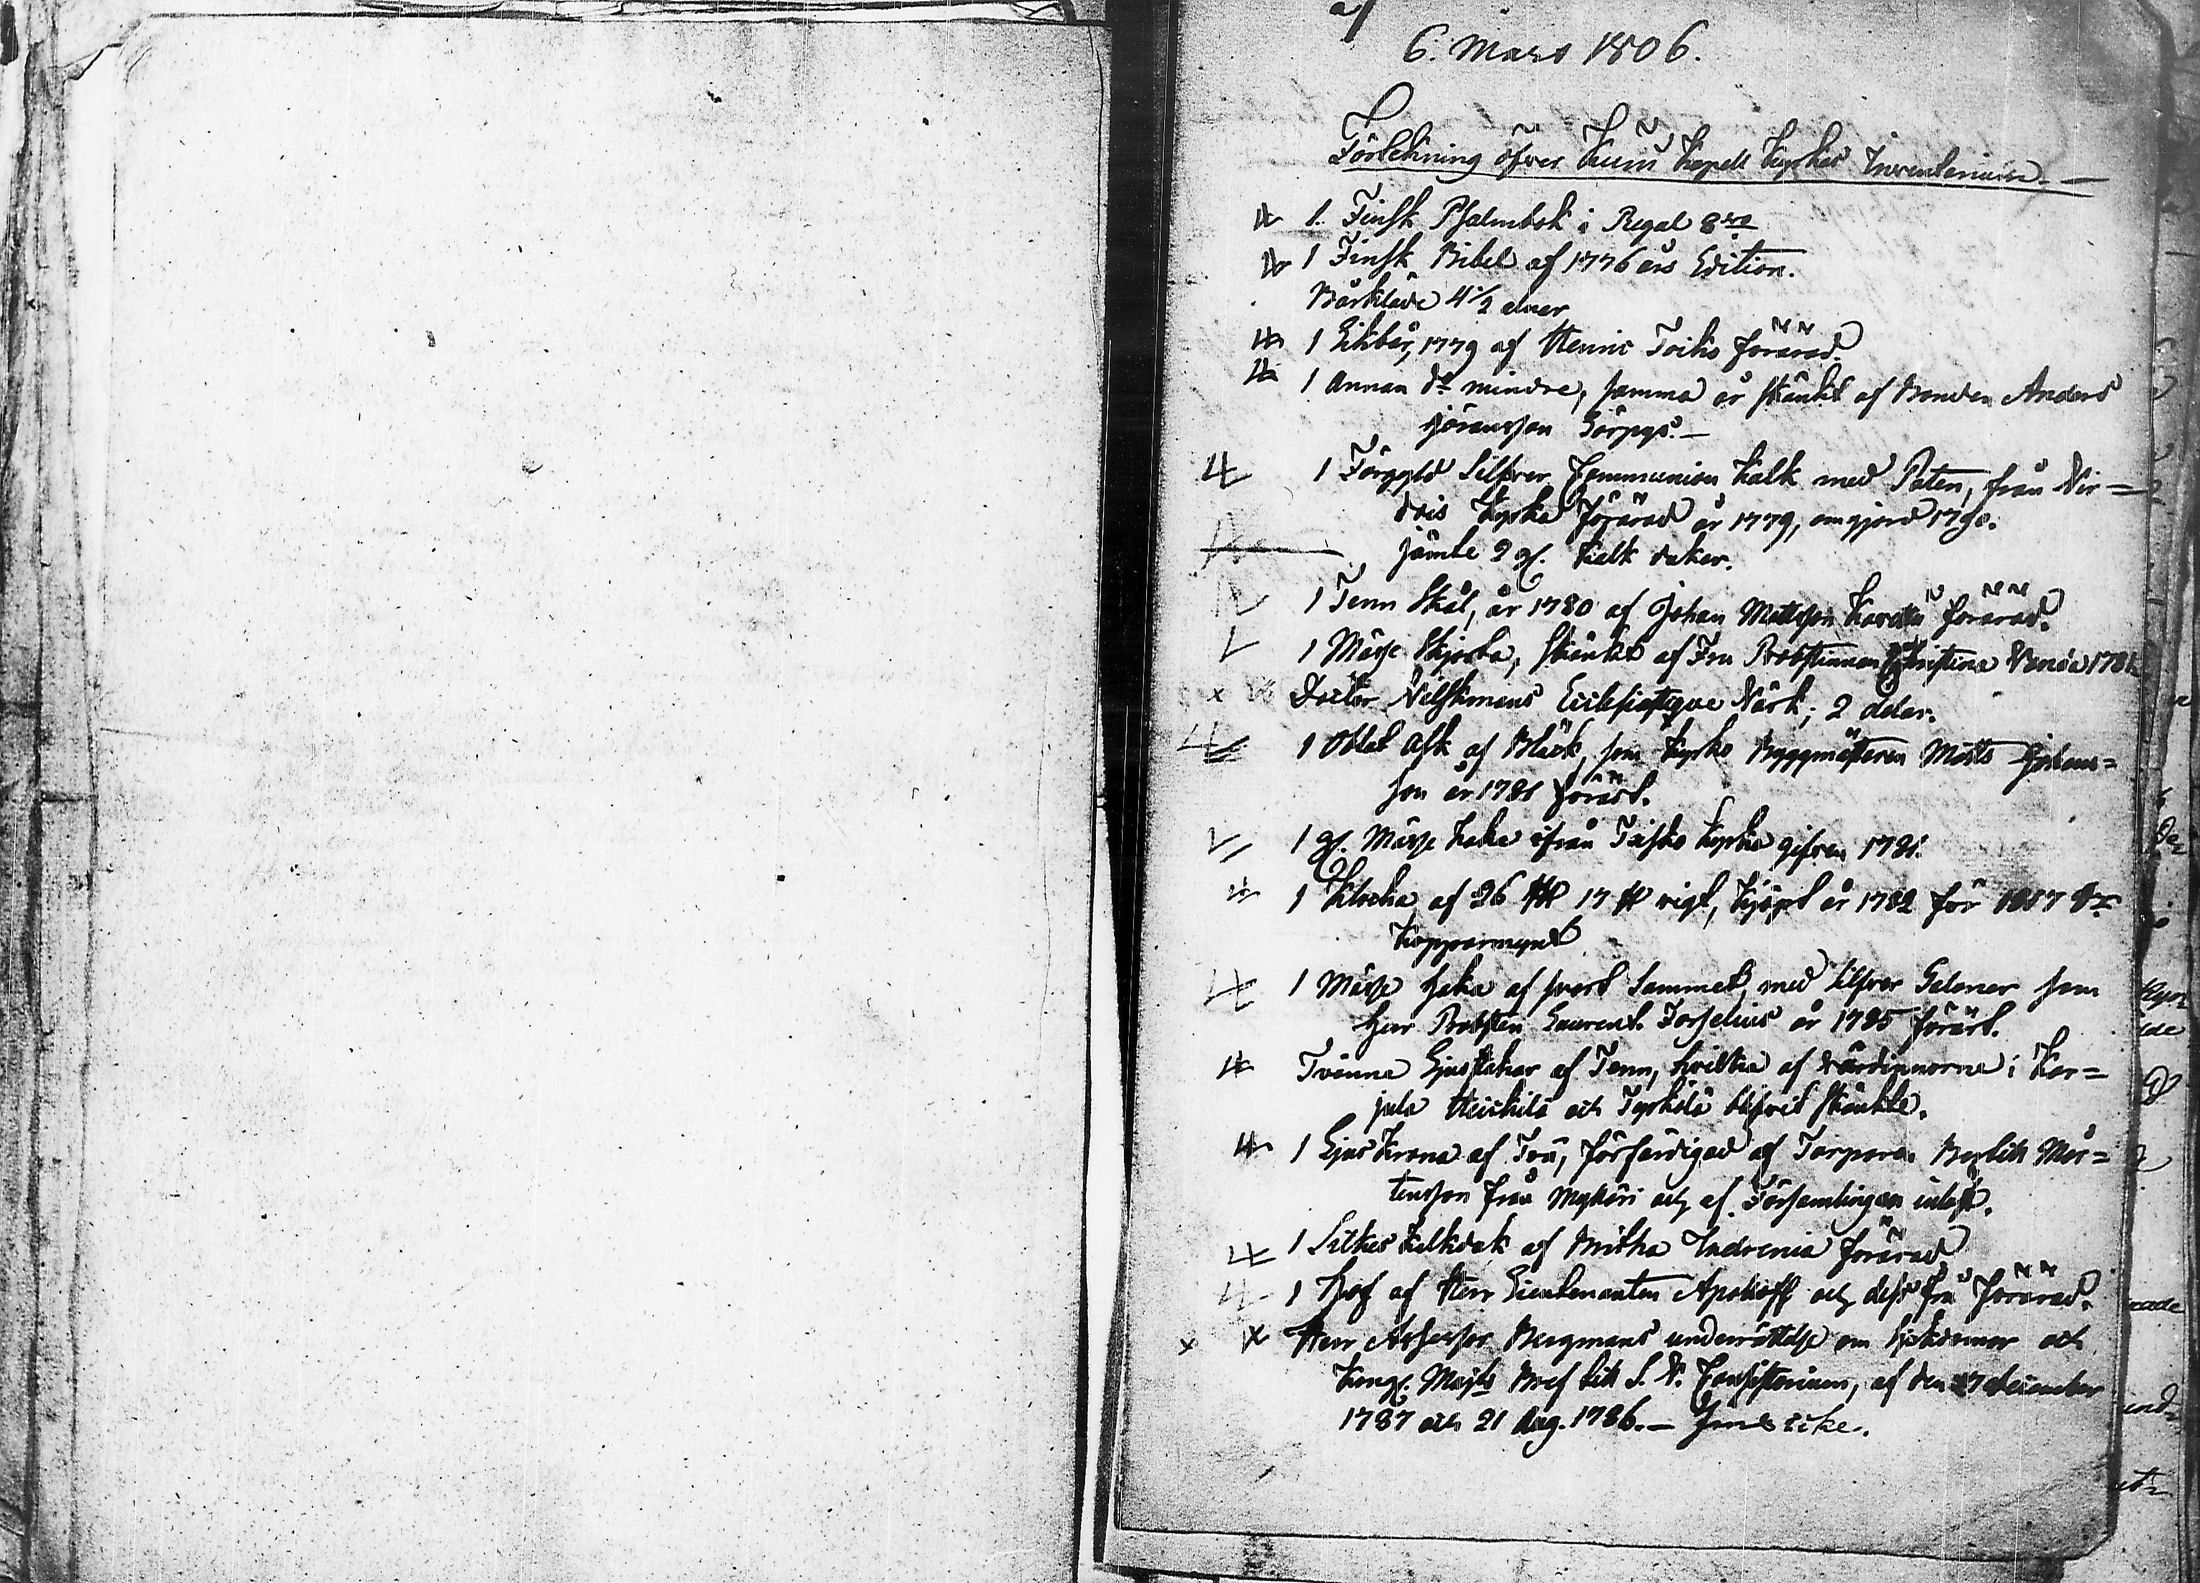 af
6. Mars 1806.
Förtekning öfver Kuru Kapell Kyrkas Inventarium. —
1. Finsk Psalmbok i Regal 8:vo
1 Finsk Bibel af 1776 års Edition.
Bårkläde 4 1/2 alnar
1 Likbår, 1779 af Henric Toiko förärad.
1 annan d:o mindre, samma år skänkt af Bonden Anders
Jöransson
1 Förgyld Silfver Communion Kalk med Paten, från Vir=
dois Kyrka förärad år 1779, omgjord 1790.
jämte 2 gl. Kalk dukar.
1 Tenn Skål, år 1780 af Johan Mattsson förärad.
1 Mässe Skjorta, skänkt af Fru Probstinnan Christina 1781
Doctor Ecclesiastique Värk; 2 delar.
1 Oblat Ask af Bläck, som Kyrko Byggmästaren Matts Johans=
son år 1781 förärt.
1 gl. Mässe Haka ifrån Kyrka gifven 1781.
1 Klocka af 26 L℔ 17 ℔ vigt, Kjöpt år 1782 för 1817 D:r
Kopparmynt
1 Mässe Haka af svart Sammet, med silfver Galoner som
Herr Probsten Laurent. Forselius år 1785 förärt.
Tvänne Ljusstakar af Tenn, hvilka af värdinnorna i Kar=
jula Heickilä och Tyrkölä blifvit skänkte.
1 Ljus Krona af Trä, förfärdigad af Torparen Mår=
tensson från och af Församlingen inlöst.
1 Silkes Kalkduk af Britha Indrenia förärad
1 Håf af Herr Lieutenanten Apolloff och dess fru förärad.
Herr Assessor Bergmans underrättelse om Sjukdomar och
Kongl. Majts Bref till S. V. Consistorium, af den 17 december
1787 och 21 Aug. 1786. — fins icke.